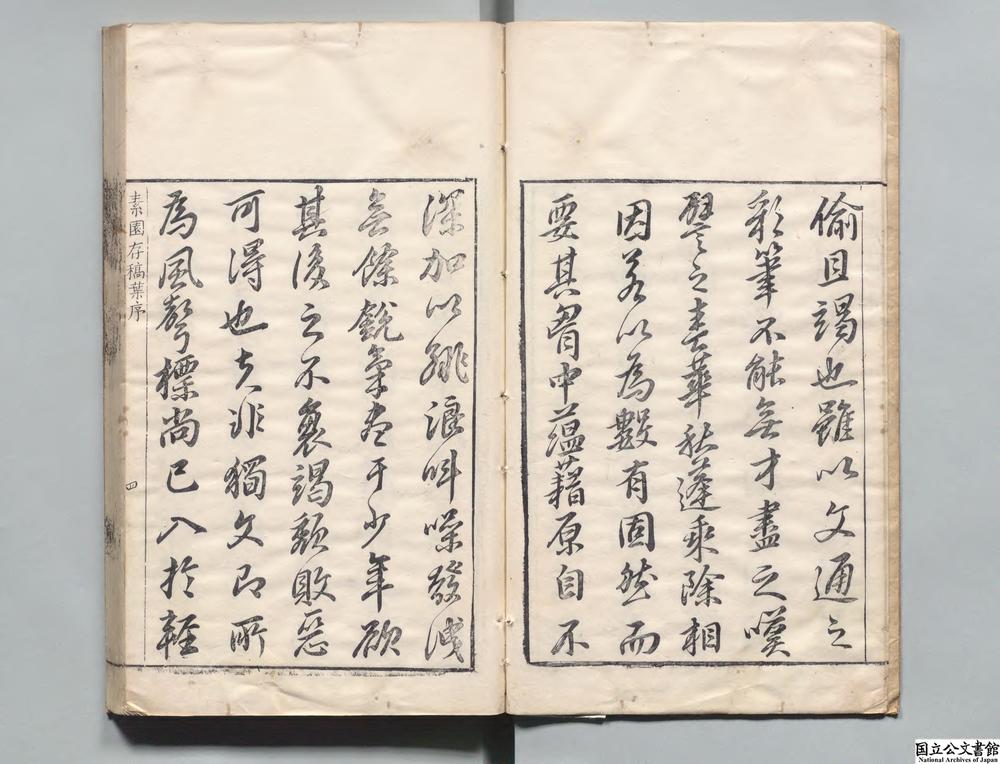 偷且竭也雖以文通之
彩筆不能無才盡之嘆
譬之春華秋蓬乘除相
因若以為數有固然而
要其胷中蘊藉原自不
深加以跳浪叫噪發洩
無餘銳氣盡于少年欲
其後之不衰竭頹敗惡
可得也夫非獨文即所
為風聲標尚已入於輕
素園存稿葉序
四
国立公文書館
National Archives of Japan